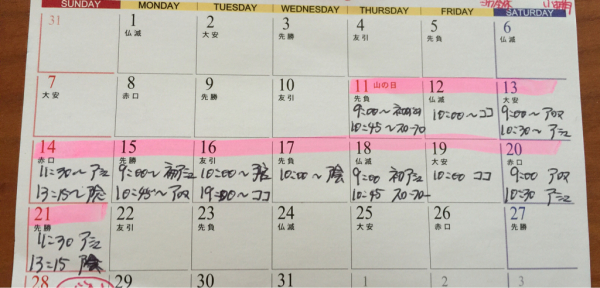 SUNDAY MONDAY TUESDAY WEDNESDAY THURSDAY FRIDAY SATURDAY
31 1 2 3 4 5 6
仏滅 大安 先勝 友引 先負 仏滅
7 8 9 10 11 山の日 12 13
大安 赤口 先勝 友引 先負 仏滅 大安
9:00〜 10:00〜ココ 9:00〜アロマ
10:45〜スローフロー 10:30〜アシュ
14 15 16 17 18 19 20
赤口 先勝 友引 先負 仏滅 大安 赤口
11:30〜アシュ 9:00〜初アシュ 10:00〜陰 10:00〜陰 9:00 初アシュ 10:00 ココ 9:00 アロマ
13:15〜陰 10:45〜アロマ 19:00〜ココ 10:45 スローフロー 10:30 アシュ
21 22 23 24 25 26 27
先勝 友引 先負 仏滅 大安 赤口 先勝
11:30 アシュ
13:15 陰
28 29 30 31 1 2 3